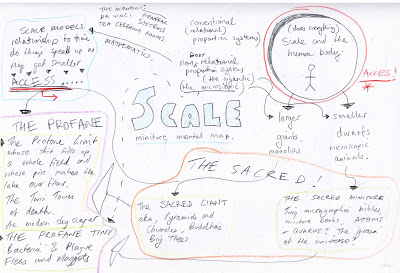 SCALE MODELS
relationship to time
do things speed up as
they get smaller
ACCESS
THE ACROPOLIS
DA VINCI
TEA CEREMONY ROOMS
GENERAL
SYSTEMS
MATHEMATICS
conventional
(relational)
proportion systems
Door
Non relational
proportion system
(the gigantic)
(the microscopic)
(does everything)
Scale and the
human body.
ACCESS!
larger
giants
monoliths
smaller
dwarfs
microscopic
animals.
SCALE
miniture mental map.
THE PROFANE
The Profane Giant
whose shit fills up
a whole field and
whose piss makes the
lake over flow.
The Twin Towers
of death.
the modern sky scraper
THE PROFANE TINY
Bacteria & Plague
Fleas and Maggots
THE SACRED!
THE SACRED GIANT
aka Pyramids and
Churches, Buddhas
Big Trees
THE SACRED MINITURE
Tiny micrographic bibles
miniture books. ATOMS
& QUARKS? The grain
of the universe!